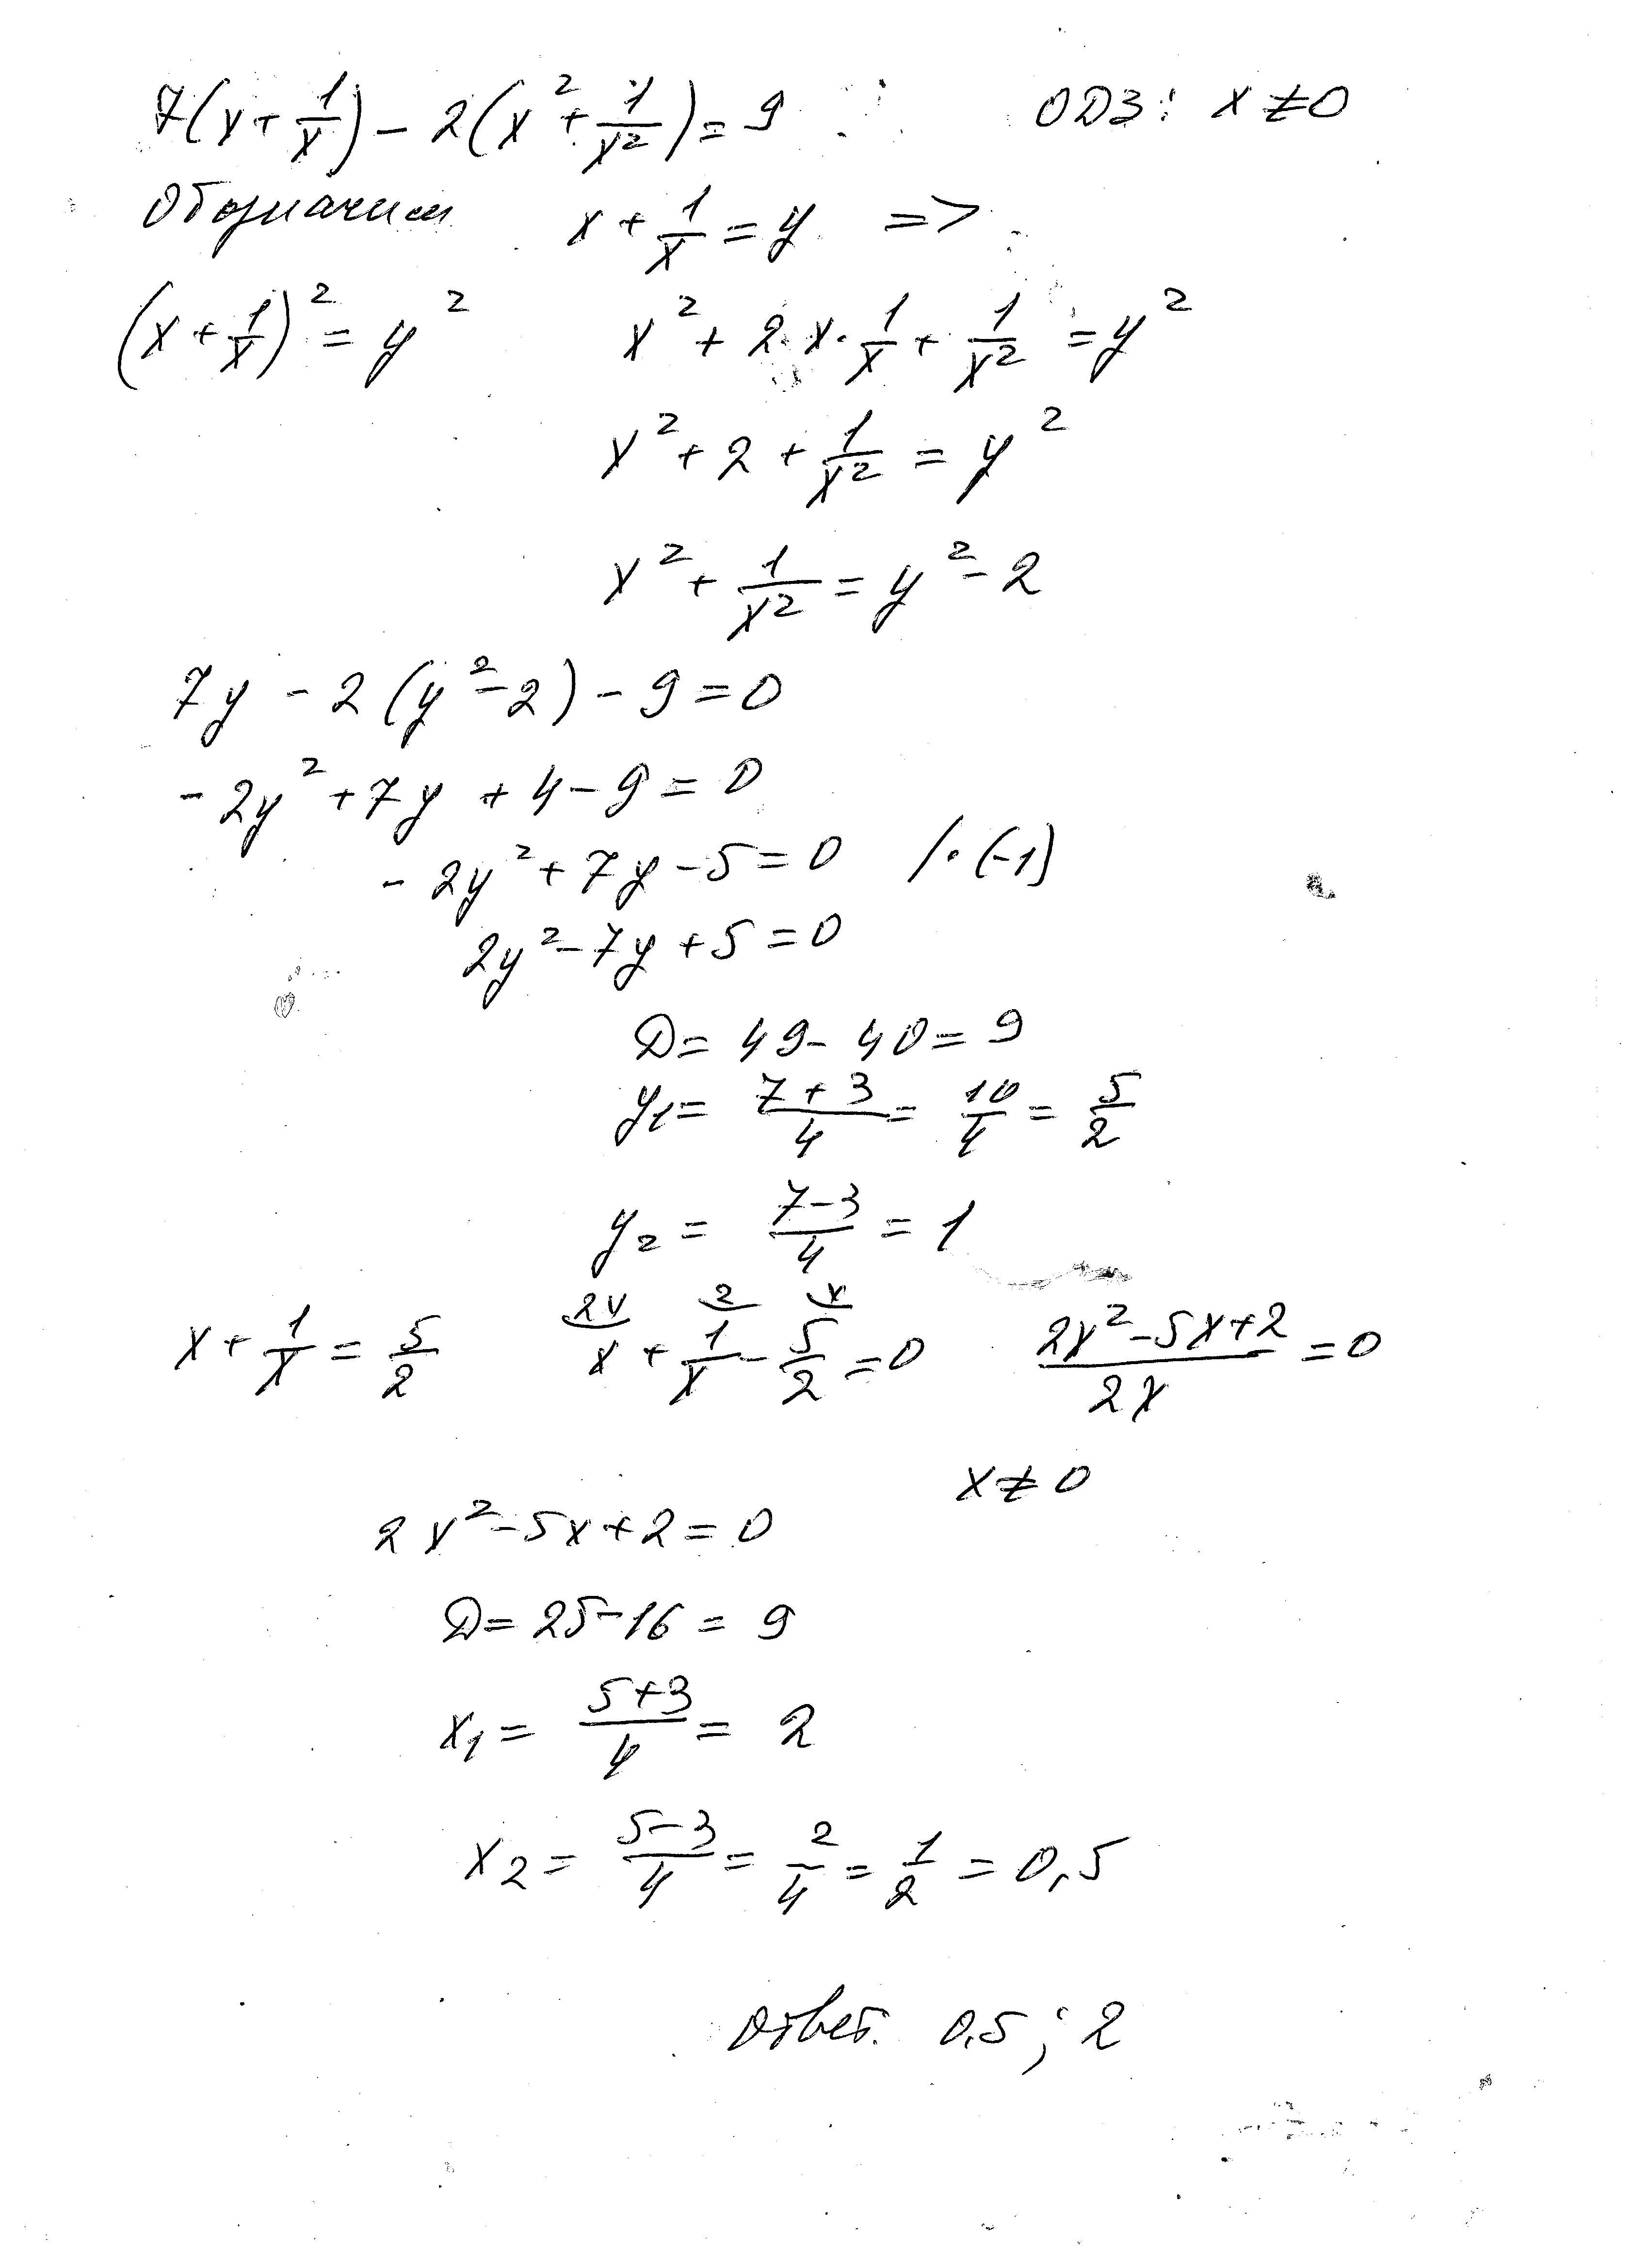 7(x+1/x) - 2(x²+1/x²) = 9 ОДЗ: x≠0
Обозначим x+1/x=y =>
(x+1/x)²=y² x²+2·x·1/x+1/x²=y²
x²+2+1/x²=y²
x²+1/x²=y²-2
7y-2(y²-2)-9=0
-2y²+7y+4-9=0
-2y²+7y-5=0 /·(-1)
2y²-7y+5=0
D=49-40=9
y₁=(7+3)/4=10/4=5/2
y₂=(7-3)/4=1
2x 2 x
x+1/x=5/2 x+1/x-5/2=0 (2x²-5x+2)/2x=0
x≠0
2x²-5x+2=0
D=25-16=9
x₁=(5+3)/4=2
x₂=(5-3)/4=2/4=1/2=0,5
Ответ. 0,5; 2